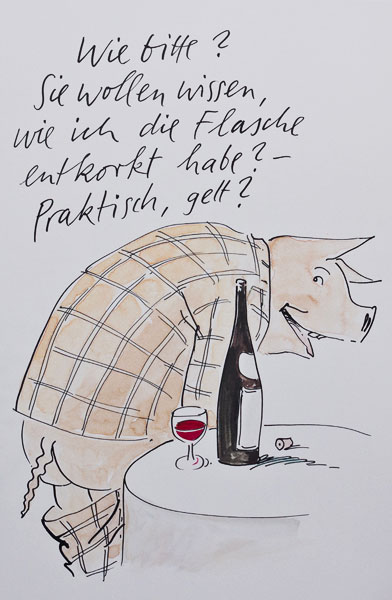 Wie bitte?
Sie wollen wissen,
wie ich die Flasche
entkorkt habe? –
Praktisch, gelt?